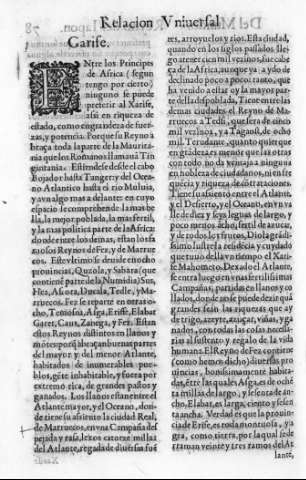 Relacion Vniuersal
Garife.
ENtre los Principes
de Africa (segun
tengo por cierto)
ninguno se puede
preferir al Xarife,
assi en riqueza de
estado, como en grandeza de fuer-
zas, y potencia. Porque su Reyno a
braça toda la parte de la Maurita
nia que los Romanos llamauã Tin
gintania. Estiendese desde el cabo
Bojador hasta Tanger, y del Ocea-
no Atlantico hasta el rio Muluia,
y avn algo mas adelante: en cuyo
espacio se comprehende la mas be
lla, la mejor poblada, la mas fertil,
y la mas politica parte de la Africa:
do ue entre los demas, estan los fa
mosos Reynos de Fez, y de Marrue
cos. Este vltimo se diuide en ocho
prouincias,
tiene parte de la Numidia) Sus,
Hea, Ducala, Tedle, y Ma-
rruecos. Fez se reparte en otras o-
cho, Temesna, Asga, Errife, Elabar
Garet, Caus, y Fez. Estan
estos Reynos distintos en llanos y
montes porque abraçan buenas partes
del mayor y del menor Atlante,
habitados de inumerables pue-
blos, fuerte inhabitable, y fuera por
estremo rica, de grandes pastos y
ganados. Los llanos estan entre el
Atlante mayor, y el Oceano, don-
de tiene su assiento la ciudad Real,
de Marruecos, en vna Campaña des
pejada y rasa, lexos catorze millas
del Atlante, regada de diuersas fuẽ
tes, arroyuelos y rios. Esta ciudad,
quando en los siglos passados lle-
gó a tener cien mil vezinos, fue cabe
ça de la Africa, aunque ya a ydo de
clinado poco a poco tanto, que
ha venido a estar oy la mayor par
te della despoblada. Tiene entre las
demas ciudades el Reyno de Ma-
rruecos a Tedsi, que sera de cinco
mil vezinos, y a Tagaost, de ocho
mil. Terodante, quanto quier que
en grandeza ceda a muchas de otras
con todo no da ventaja a ninguna
en nobleza de ciudadanos, ni en fre
quẽcia y riqueza de contrataciones.
Tiene su assiento entre el Atlante,
y el Desierto, y el Oceano, en vn va
lle de diez y seys leguas de largo, y
poco menos ancho, fertil de azucar,
y de todos los frutos. Diola grãdis
simo lustre la residẽcia y cuydado
que tuuo della vn tiempo el Xari-
fe Mahometo. Dexado el Atlante,
se entra luego en vnas fertilissimas
Campañas, partidas en llanos y co
llados, donde no se puede dezir quã
grandes sean las riquezas que ay
de trigo, azeyte, azucar, viñas, ga-
nados, con todas las cosas necessa-
rias al sustento y regalo de la vida
humana. El Reyno de Fez contiene
(como hemos dicho) diuersas pro
uincias, bonissimamente habita-
das, entre las quales Asga, es de ochẽ
ta millas de largo, y sesenta de an-
cho. Elabar, es larga, ciento y sesen
ta ancha. Verdad es que la prouin-
cia de Errife, es toda montuosa, y a
gra, como tierra, por la qual se de
rraman veinte y tres ramos del At
lante,